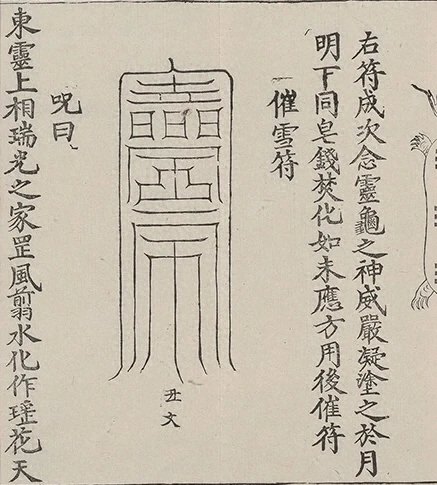 右符成次念靈龜之神威嚴凝塗之於月
明下同皂錢焚化如未應方用後催符
一催雪符
丑文
呪曰
東靈上相瑞光之家罡風翦水化作瑤花天